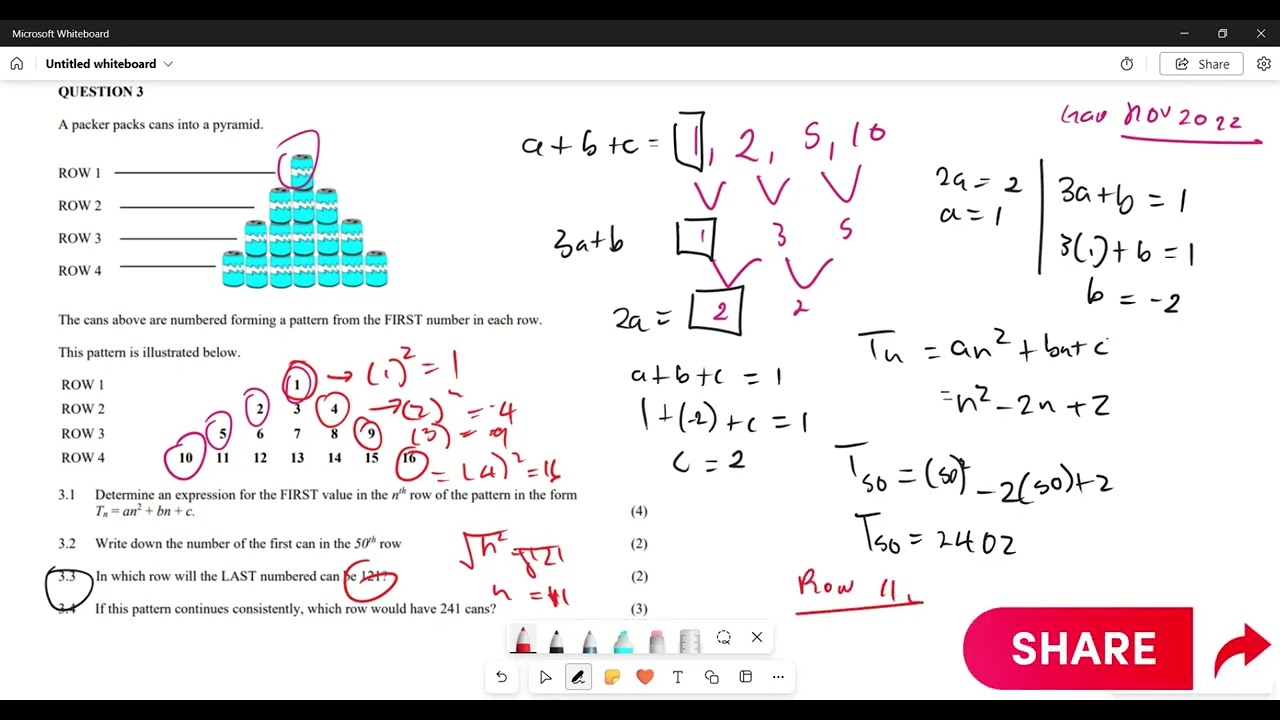 Microsoft Whiteboard
Untitled whiteboard
Share
QUESTION 3
A packer packs cans into a pyramid.
ROW 1
ROW 2
ROW 3
ROW 4
The cans above are numbered forming a pattern from the FIRST number in each row.
This pattern is illustrated below.
ROW 1 1 → (1)² = 1
ROW 2 2 3 4 → (2)² = 4
ROW 3 5 6 7 8 9 (3) = 9
ROW 4 10 11 12 13 14 15 16 = (4)² = 16
3.1 Determine an expression for the FIRST value in the nᵗʰ row of the pattern in the form
Tₙ = an² + bn + c. (4)
3.2 Write down the number of the first can in the 50ᵗʰ row (2)
3.3 In which row will the LAST numbered can be 121? (2)
3.4 If this pattern continues consistently, which row would have 241 cans? (3)
√n² = √121
n = 11
a + b + c = 1, 2, 5, 10
3a + b 1 3 5
2a = 2 2
a + b + c = 1
1 + (-2) + c = 1
c = 2
Nov 2022
2a = 2
a = 1
3a + b = 1
3(1) + b = 1
b = -2
Tₙ = an² + bn + c
= n² - 2n + 2
T₅₀ = (50)² - 2(50) + 2
T₅₀ = 2402
Row 11,
SHARE
T